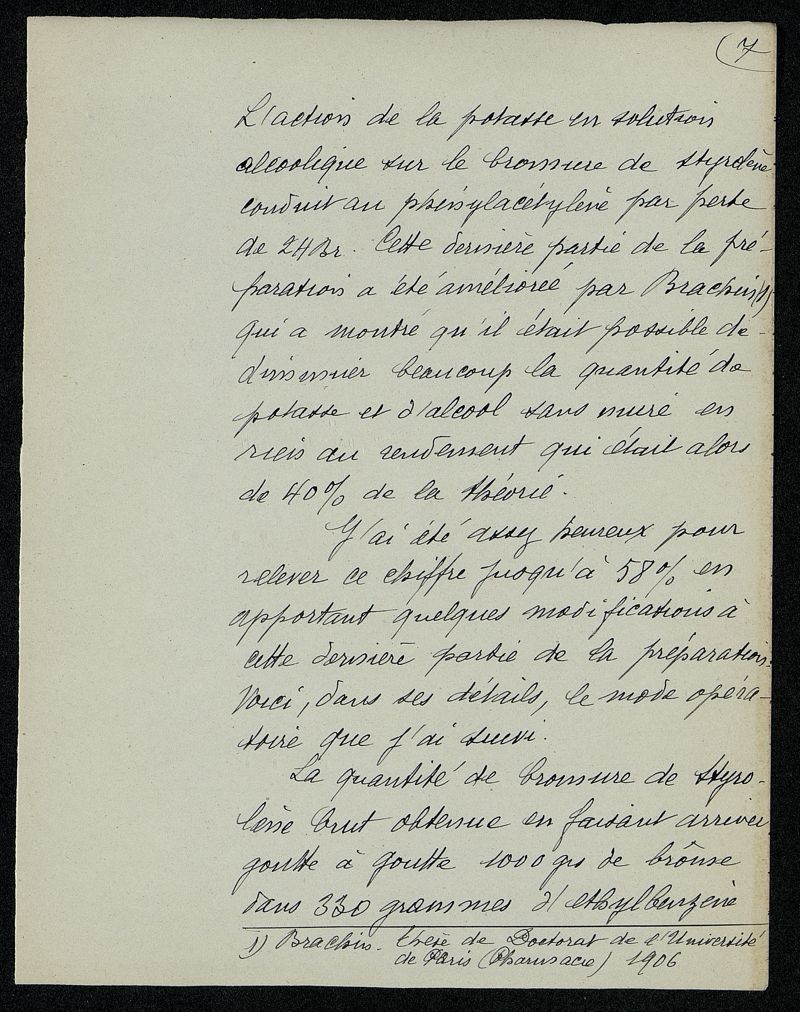 7
L'action de la potasse en solution
alcoolique sur le bromure de styrolène
conduit au phénylacétylène par perte
de 2HBr. Cette dernière partie de la pré-
paration a été améliorée par Brachin(1)
qui a montré qu'il était possible de
diminuer beaucoup la quantité de
potasse et d'alcool sans nuire en
rien au rendement qui était alors
de 40% de la théorie.
J'ai été assez heureux pour
relever ce chiffre jusqu'à 58% en
apportant quelques modifications à
cette dernière partie de la préparation.
Voici, dans ses détails, le mode opéra-
toire que j'ai suivi.
La quantité de bromure de styro-
lène brut obtenue en faisant arriver
goutte à goutte 1000 grs de brôme
dans 330 grammes d'éthylbenzène
1) Brachin. thèse de Doctorat de l'Université
de Paris (Pharmacie) 1906